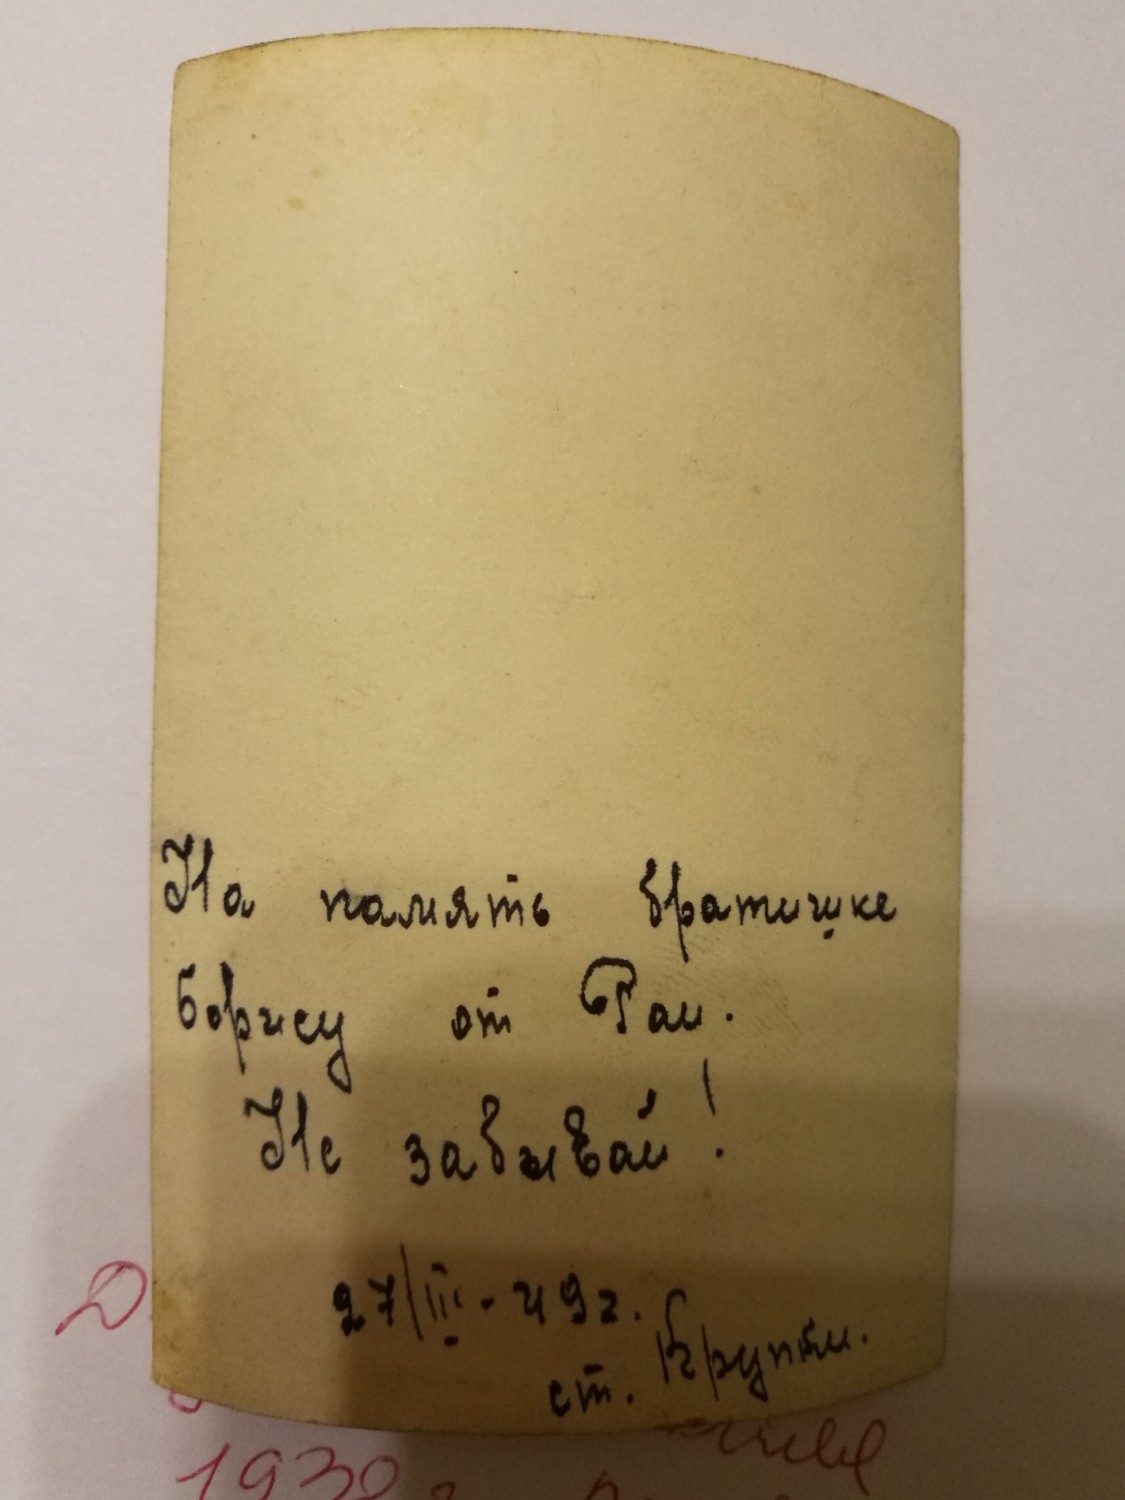 На память братишке
Борису от Раи.
Не забывай!
27/III-49г.
ст. Крупки.
Д
1938 г.